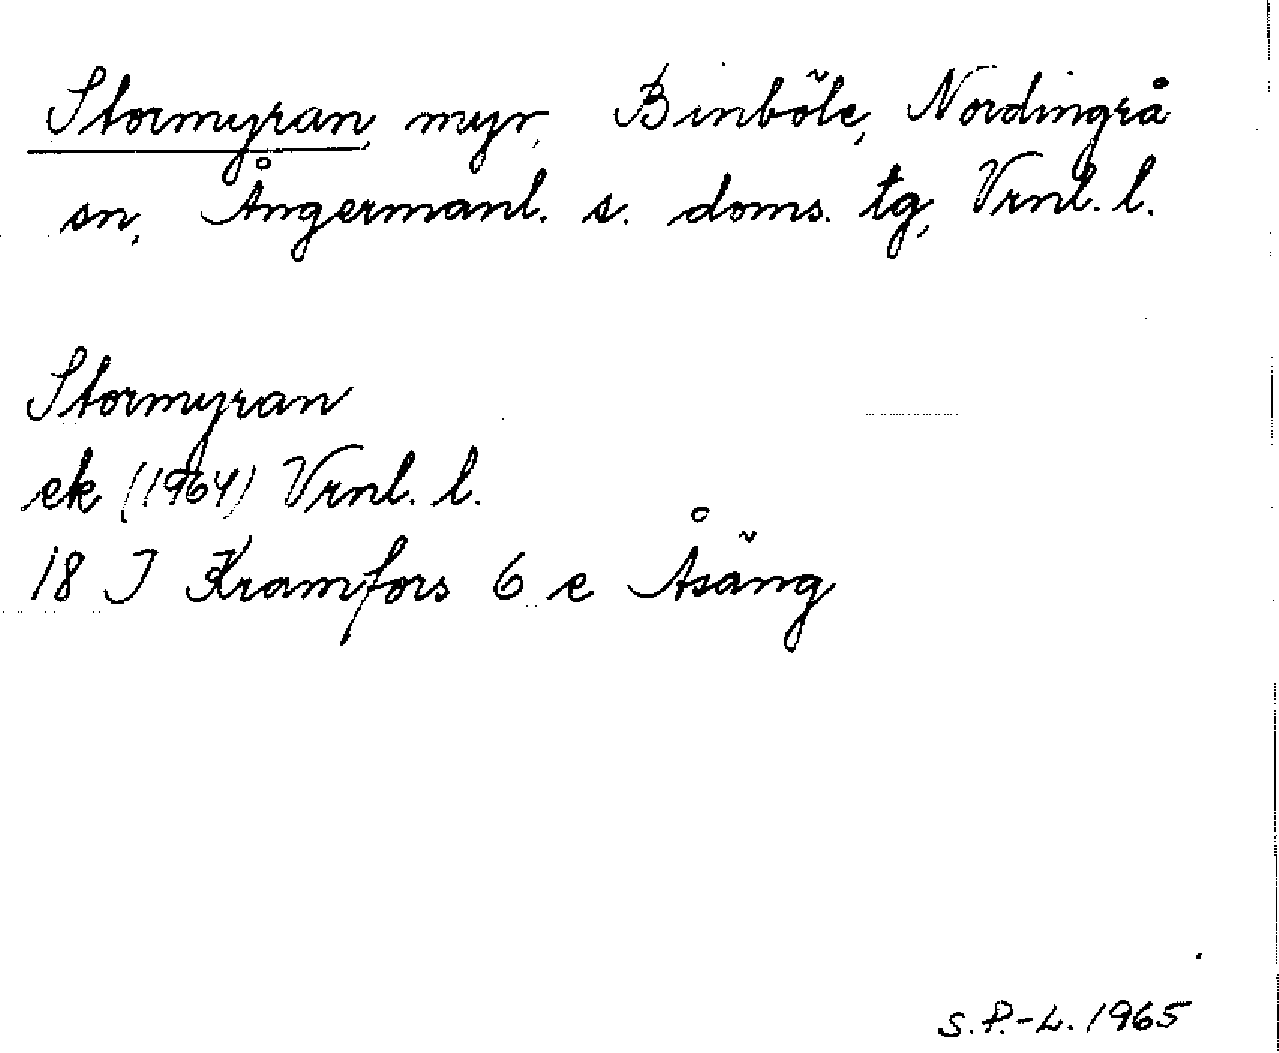 Stormyran, myr, Binböle, Nordingrå
sn, Ångermanl. s. doms. tg, Vrnl. l.
Stormyran
ek (1964) Vrnl. l.
18 J Kramfors 6 e Åsäng
S.P.-L. 1965